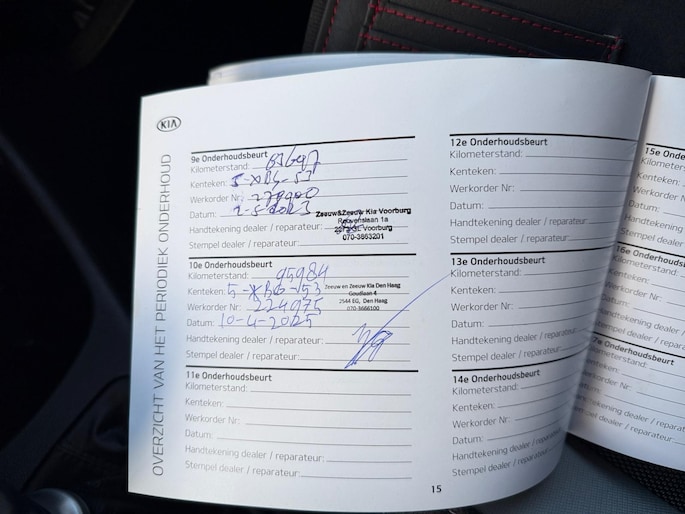 KIA
OVERZICHT VAN HET PERIODIEK ONDERHOUD
9e Onderhoudsbeurt
Kilometerstand:
Kenteken: 5-XBG-53
Werkorder Nr:
Datum:
Handtekening dealer / reparateur:
Stempel dealer / reparateur:
Zeeuw&Zeeuw Kia Voorburg
1a
Voorburg
070-3863201
10e Onderhoudsbeurt
Kilometerstand: 95984
Kenteken: 5-XBG-53
Werkorder Nr: 224975
Datum: 10-4-2025
Handtekening dealer / reparateur:
Stempel dealer / reparateur:
Zeeuw en Zeeuw Kia Den Haag
Goudlaan 4
2544 EG, Den Haag
070-3666100
11e Onderhoudsbeurt
Kilometerstand:
Kenteken:
Werkorder Nr:
Datum:
Handtekening dealer / reparateur:
Stempel dealer / reparateur:
12e Onderhoudsbeurt
Kilometerstand:
Kenteken:
Werkorder Nr:
Datum:
Handtekening dealer / reparateur:
Stempel dealer / reparateur:
13e Onderhoudsbeurt
Kilometerstand:
Kenteken:
Werkorder Nr:
Datum:
Handtekening dealer / reparateur:
Stempel dealer / reparateur:
14e Onderhoudsbeurt
Kilometerstand:
Kenteken:
Werkorder Nr:
Datum:
Handtekening dealer / reparateur:
Stempel dealer / reparateur:
15
15e Onderhou
Kilometers
Kenteken:
Werkorder
Datum:
Handtekening
Stempel deale
16e Onderhou
Kilometerst
Kenteken:
Werkorder N
Datum:
Handtekening dealer
Stempel dealer / repa
7e Onderhoudsbeurt